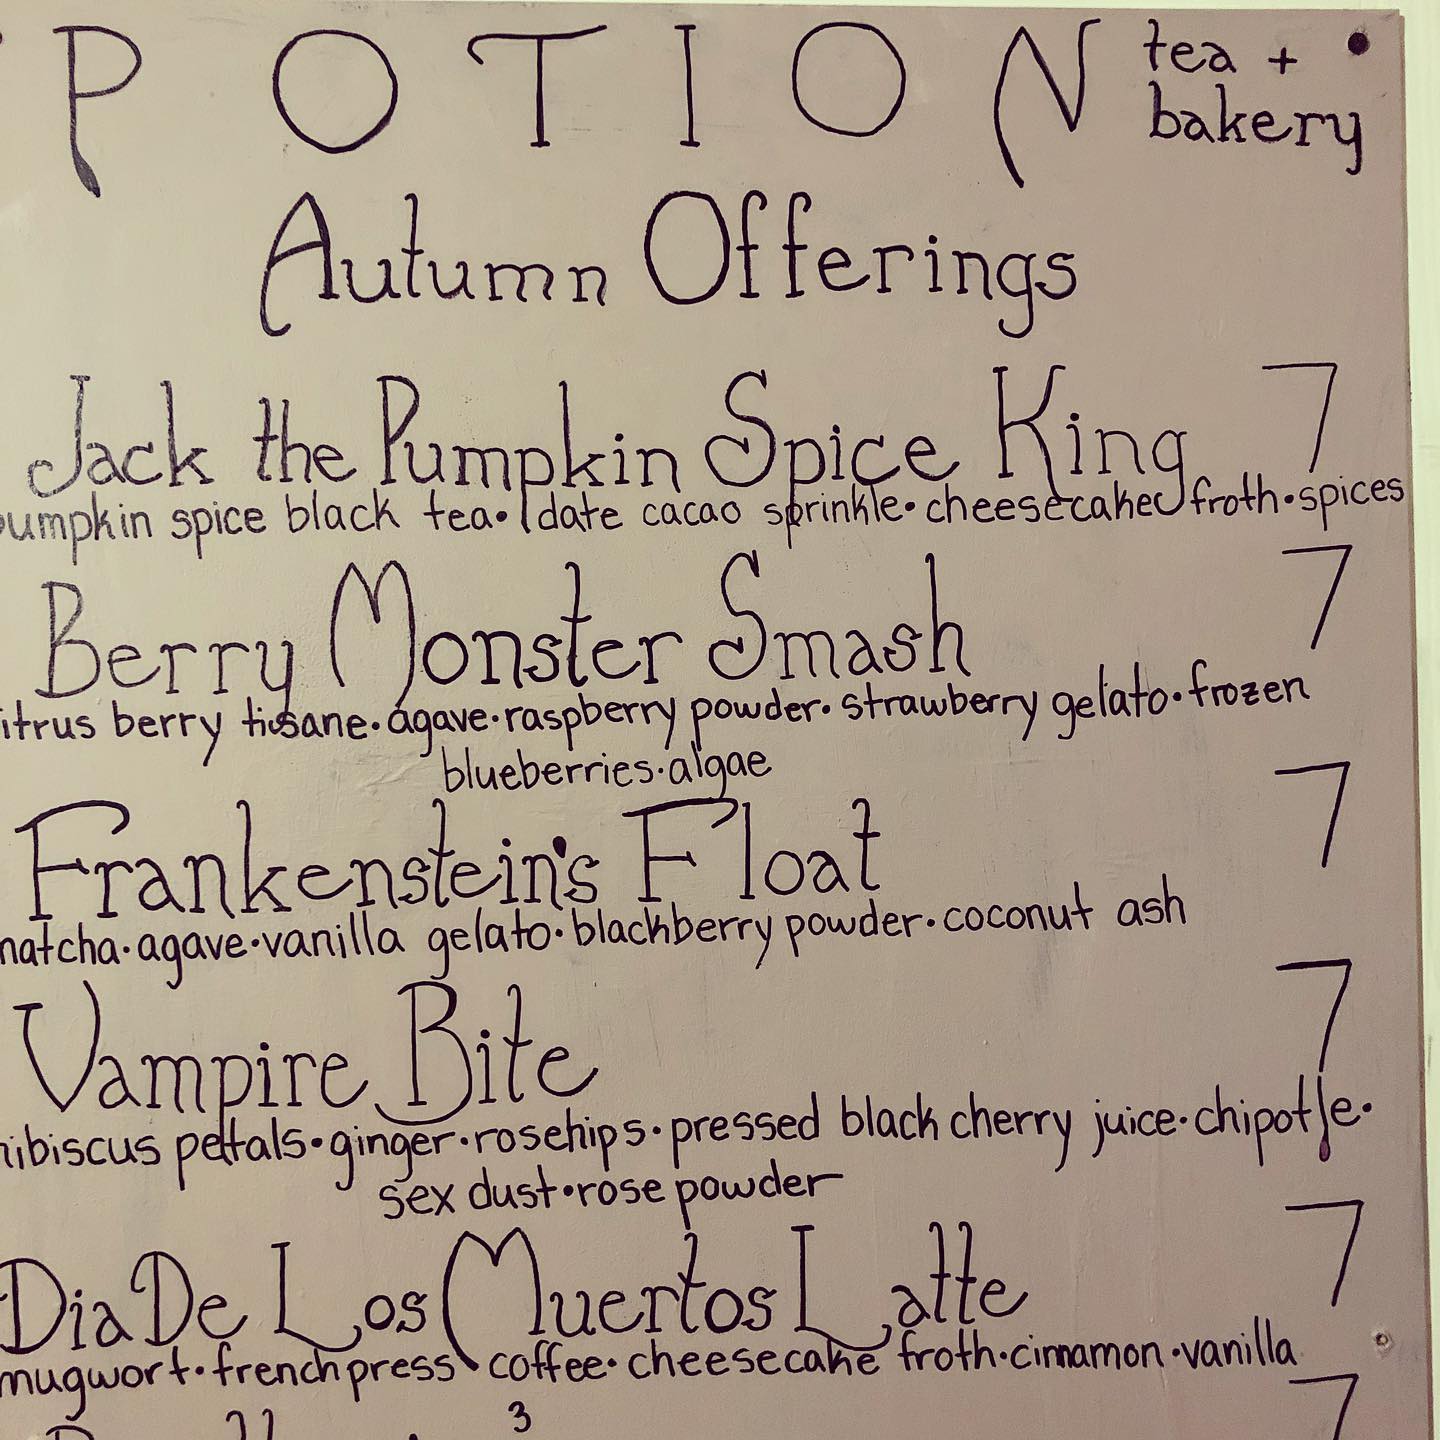 POTION tea +
bakery
Autumn Offerings
Jack the Pumpkin Spice King 7
pumpkin spice black tea • date cacao sprinkle • cheesecake froth • spices
Berry Monster Smash 7
itrus berry tisane • agave • raspberry powder • strawberry gelato • frozen
blueberries • algae
Frankenstein's Float 7
matcha • agave • vanilla gelato • blackberry powder • coconut ash
Vampire Bite 7
hibiscus petals • ginger • rosehips • pressed black cherry juice • chipotle •
sex dust • rose powder
Dia De Los Muertos Latte 7
mugwort • french press coffee • cheesecake froth • cinnamon • vanilla
3 7